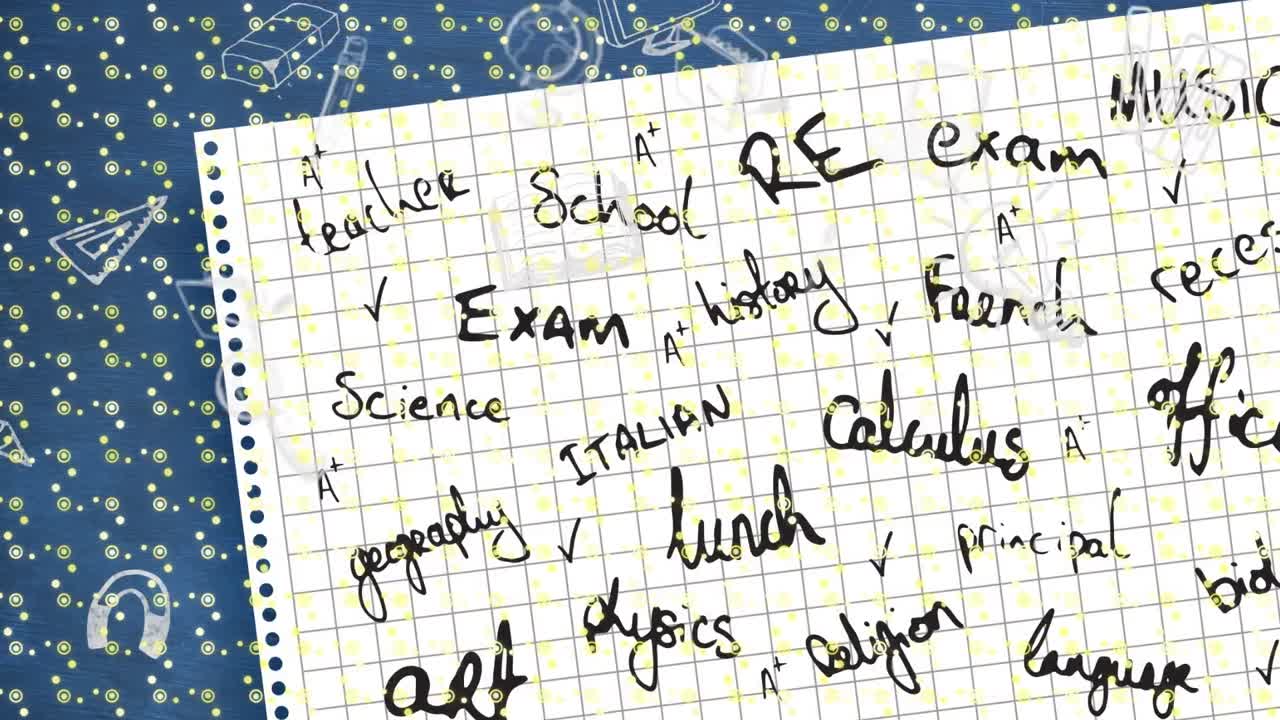 A+ A+ RE exam MUSIC
teacher School ✓ A+
✓ Exam A+ history ✓ French
Science ITALIAN calculus A+
A+ geography ✓ lunch ✓ principal
art physics A+ religion language ✓